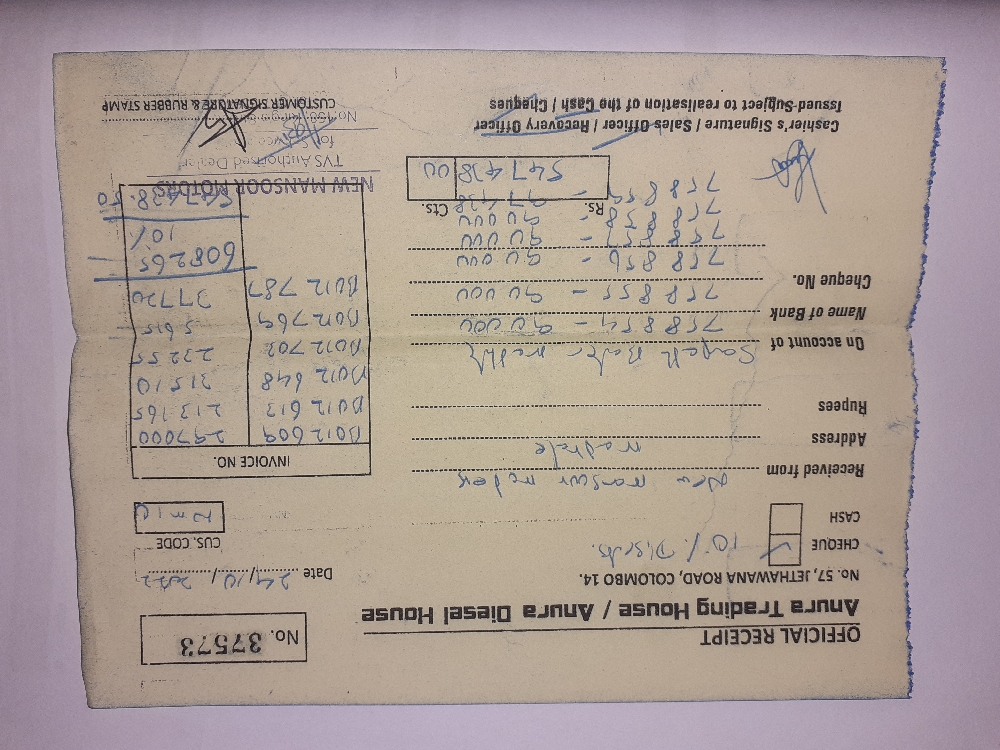 OFFICIAL RECEIPT
Anura Trading House / Anura Diesel House
No. 37573
No. 57, JETHAWANA ROAD, COLOMBO 14.
Date 29/10/2022
CHEQUE ✓ 10%
CASH
CUS. CODE
Received from New mansur
Address
Rupees
On account of
Name of Bank
Cheque No.
INVOICE NO.
B012 609 297000
B012 613 213165
B012 648 31510
B012 702 23255
B012 769 5615
B012 787 37720
608265
10%
547438.50
758854 - 90000
758855 - 90000
758856 - 90000
758857 - 90000
758858 - 90000
758859 - 97438
Rs. Cts.
547438 00
NEW MANSOOR MOTORS
TVS Authorised Dealer
Cashier's Signature / Sales Officer / Recovery Officer
Issued Subject to realisation of the Cash / Cheques
CUSTOMER SIGNATURE & RUBBER STAMP